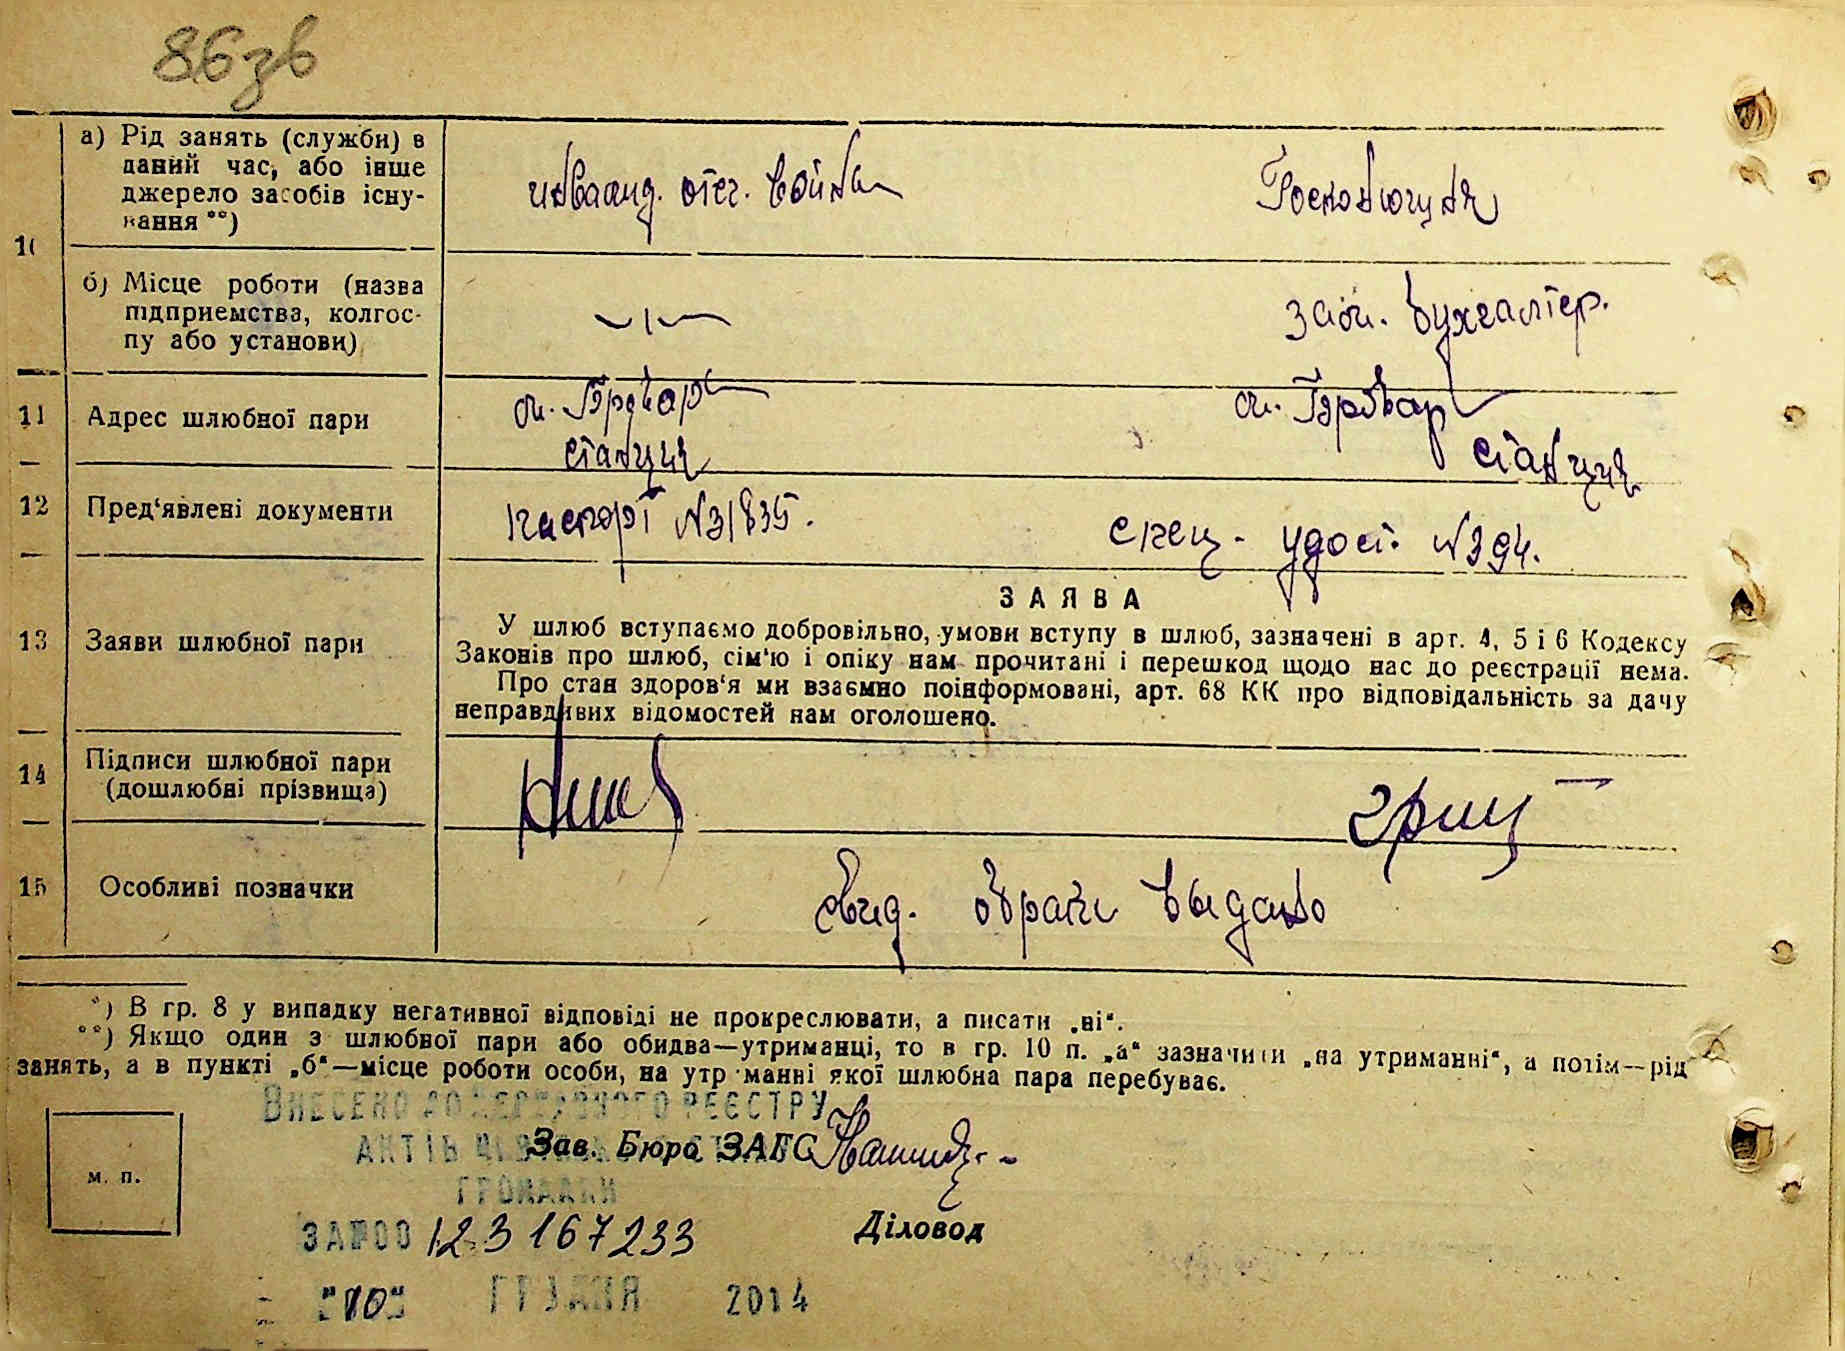 86зв
10
а) Рід занять (служби) в
даний час, або інше
джерело засобів існу-
вання **)
инвалид. отеч. войны
б) Місце роботи (назва
підприємства, колгос-
пу або установи)
зам. бухгалтер.
11 Адрес шлюбної пари
ст.
станция
ст.
станция
12 Пред'явлені документи
паспорт №31835.
спец. удост. №394.
ЗАЯВА
13 Заяви шлюбної пари
У шлюб вступаємо добровільно, умови вступу в шлюб, зазначені в арт. 4, 5 і 6 Кодексу
Законів про шлюб, сім'ю і опіку нам прочитані і перешкод щодо нас до реєстрації нема.
Про стан здоров'я ми взаємно поінформовані, арт. 68 КК про відповідальність за дачу
неправдивих відомостей нам оголошено.
14 Підписи шлюбної пари
(дошлюбні прізвища)
15 Особливі позначки
свид. о браке выдано
*) В гр. 8 у випадку негативної відповіді не прокреслювати, а писати „ні“.
**) Якщо один з шлюбної пари або обидва—утриманці, то в гр. 10 п. „а“ зазначити „на утриманні“, а потім—рід
занять, а в пункті „б“—місце роботи особи, на утриманні якої шлюбна пара перебуває.
ВНЕСЕНО ДО ДЕРЖАВНОГО РЕЄСТРУ
АКТІВ ЦИВІЛЬНОГО СТАНУ
Зав. Бюро ЗАГС
ГРОМАДЯН
м. п.
ЗА №00 123167233
Діловод
"10" ГРУДНЯ 2014